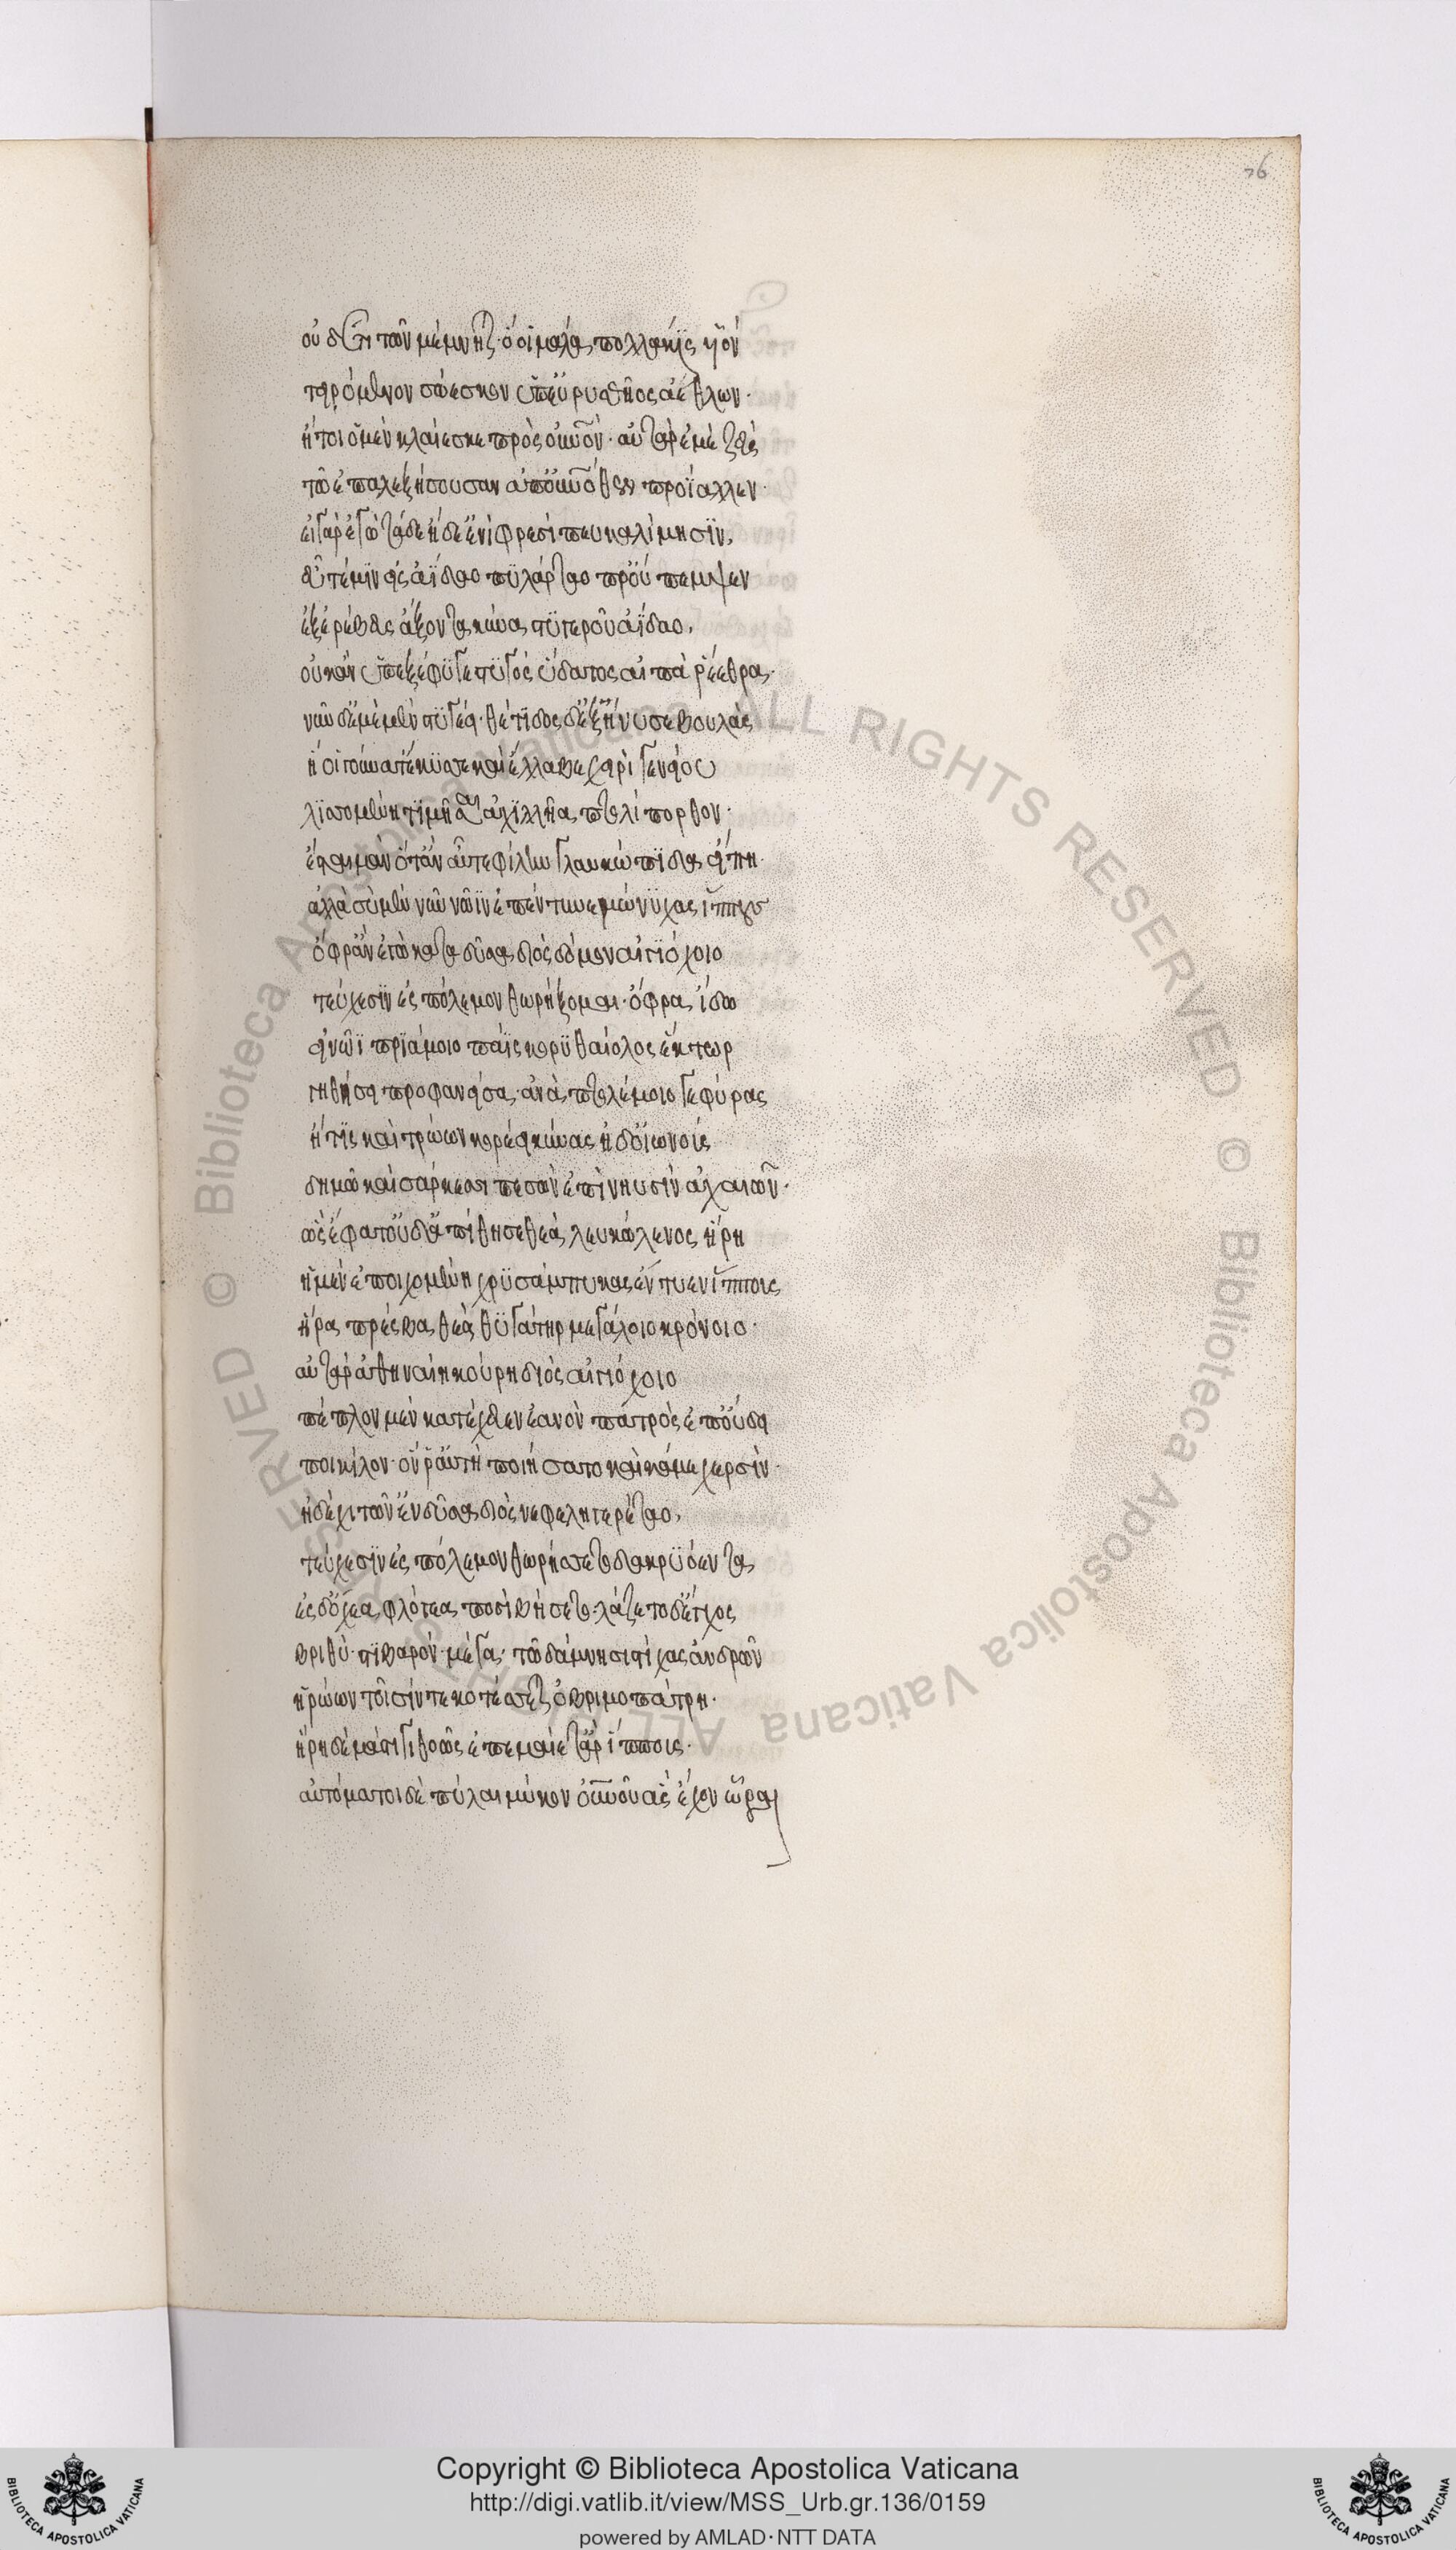 76
οὐδέτι τῶν μέμνηται· ὅ οἱ μάλα πολλάκις υἱόν
τειρόμενον σώεσκον ὑπ' εὐρυσθῆος ἀέθλων·
ἤτοι ὁ μὲν κλαίεσκε πρὸς οὐνόν· αὐτὰρ ἐμὲ ζεὺς
τῷ ἐπαλεξήσουσαν ἀπ' οὐνόθεν προΐαλλεν·
εἰ γὰρ ἐγὼ τάδε ἤδε' ἐνὶ φρεσὶ πευκαλίμησϊν,
εὖτέ μϊν εἰς ἀΐδαο πϋλάρταο προὔπεμψεν
ἐξ ἐρέβευς ἄξοντα κύνα στϋγεροῦ ἀΐδαο,
οὐκ ἂν ὑπεξέφϋγε στϋγὸς ὕδατος αἰπὰ ῥέεθρα·
νῦν δ' ἐμὲ μὲν στϋγέει· θέτϊδος δ' ἐξήνυσε βουλάς
ἥ οἱ γούνατ' ἔκϋσσε καὶ ἔλλαβε χειρὶ γενείου
λϊσσομένη τϊμῆσαι ἀχϊλλῆα πτολίπορθον·
ἔσται μὰν ὅτ' ἂν αὖτε φίλην γλαυκώπϊδα εἴπῃ·
ἀλλὰ σὺ μὲν νῦν νῶϊν ἐπέντυνε μώνϋχας ἵππους
ὄφρ' ἂν ἐγὼ καταδῦσα διὸς δόμον αἰγϊόχοιο
τεύχεσϊν ἐς πόλεμον θωρήξομαι· ὄφρα ἴδω
εἰ νῶϊ πρϊάμοιο πάϊς κορϋθαίολος ἕκτωρ
γηθήσει προφανείσα· ἀνὰ πτολέμοιο γεφύρας
ἤ τϊς καὶ τρώων κορέει κύνας ἠδ' οἰωνοὺς
δημῷ καὶ σάρκεσσι πεσὼν ἐπὶ νηυσὶν ἀχαιῶν·
ὣς ἔφατ' οὐδ' ἀπίθησε θεὰ λευκώλενος ἥρη
ἡ μὲν ἐποιχομένη χρϋσάμπυκας ἔντυεν ἵππους
ἥρα πρέσβα θεὰ θϋγάτηρ μεγάλοιο κρόνοιο·
αὐτὰρ ἀθηναίη κούρη διὸς αἰγιόχοιο
πέπλον μὲν κατέχευεν ἑανὸν πατρὸς ἐπ' οὔδει
ποικίλον· ὅν ῥ' αὐτὴ ποιήσατο καὶ κάμε χερσὶν·
ἡ δὲ χιτῶν' ἐνδῦσα διὸς νεφεληγερέταο,
τεύχεσϊν ἐς πόλεμον θωρήσσετο δακρϋόεντα
ἐς δ' ὄχεα φλόγεα ποσὶ βήσετο· λάζετο δ' ἔγχος
βριθύ· στϊβαρόν· μέγα· τῷ δάμνησι στίχας ἀνδρῶν
ἡρώων τοῖσίν τε κοτέσσεται ὀβριμοπάτρη·
ἥρη δὲ μάστιγι θοῶς ἐπεμαίετ' ἄρ' ἵππους·
αὐτόματοι δὲ πύλαι μύκον οὐνοῦ ἃς ἔχον ὧραι
© Biblioteca Apostolica Vaticana ALL RIGHTS RESERVED © Biblioteca Apostolica Vaticana ALL RIGHTS RESERVED
Copyright © Biblioteca Apostolica Vaticana
http://digi.vatlib.it/view/MSS_Urb.gr.136/0159
powered by AMLAD·NTT DATA
BIBLIOTECA APOSTOLICA VATICANA
BIBLIOTECA APOSTOLICA VATICANA